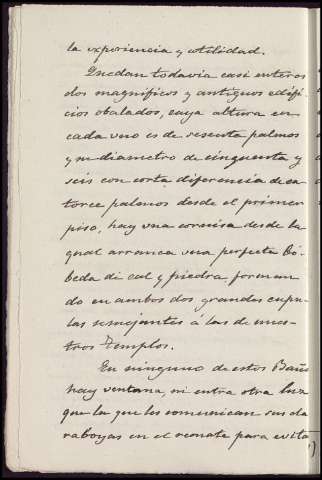 la experiencia y utilidad.
Quedan todavia casi enteros
dos magnificos y antiguos edifi
cios obalados, cuya altura en
cada uno es de sesenta palmos
y su diametro de cincuenta y
seis con corta diferencia de ca
torce palmos desde el primer
piso, hay una cornisa desde la
qual arranca una perfecta Bó-
beda de cal y piedra forman
do en ambos dos grandes cupu-
las semejantes á las de nues-
tros Templos.
En ninguno de estos Baños
hay ventana, ni entra otra luz
que la que les comunican sus cla
raboyas en el remate para evita